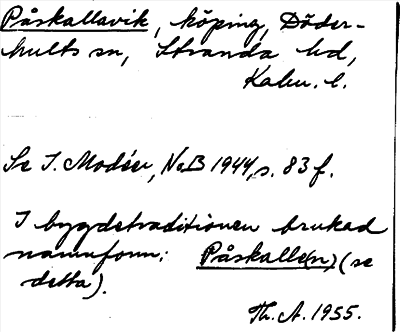 Påskallavik, köping, Döder-
hults sn, Stranda hd,
Kalm. l.
Se I. Modéer, NoB 1944, s. 83 f.
I bygdetraditionen brukad
namnform: Påskalle(n) (se
detta).
Th. A. 1955.